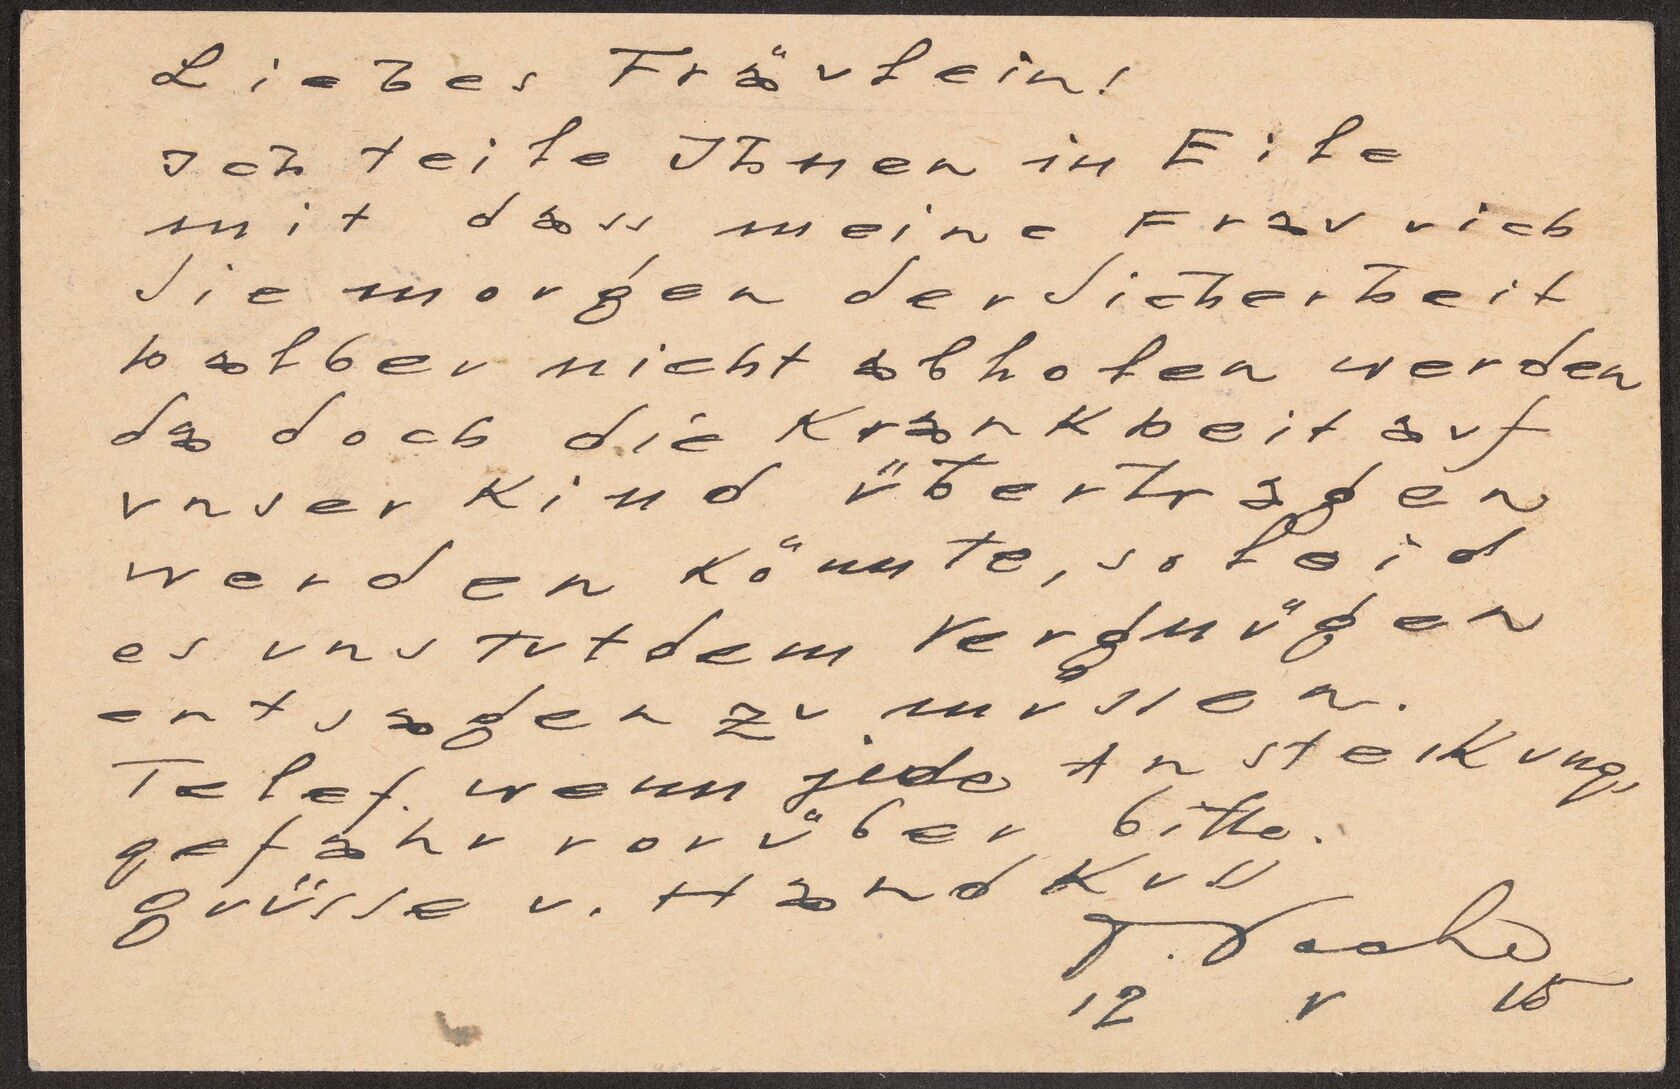 Liebes Fräulein!
Ich teile Ihnen in Eile
mit dass meine Frau u ich
Sie morgen der Sicherheit
halber nicht abholen werden
da doch die Krankheit auf
unser Kind übertragen
werden könnte, so leid
es uns tut dem Vergnügen
entsagen zu müssen.
Telef. wenn jede Ansteckungs
gefahr vorüber bitte.
grüsse u. Handkuss
12 V 15